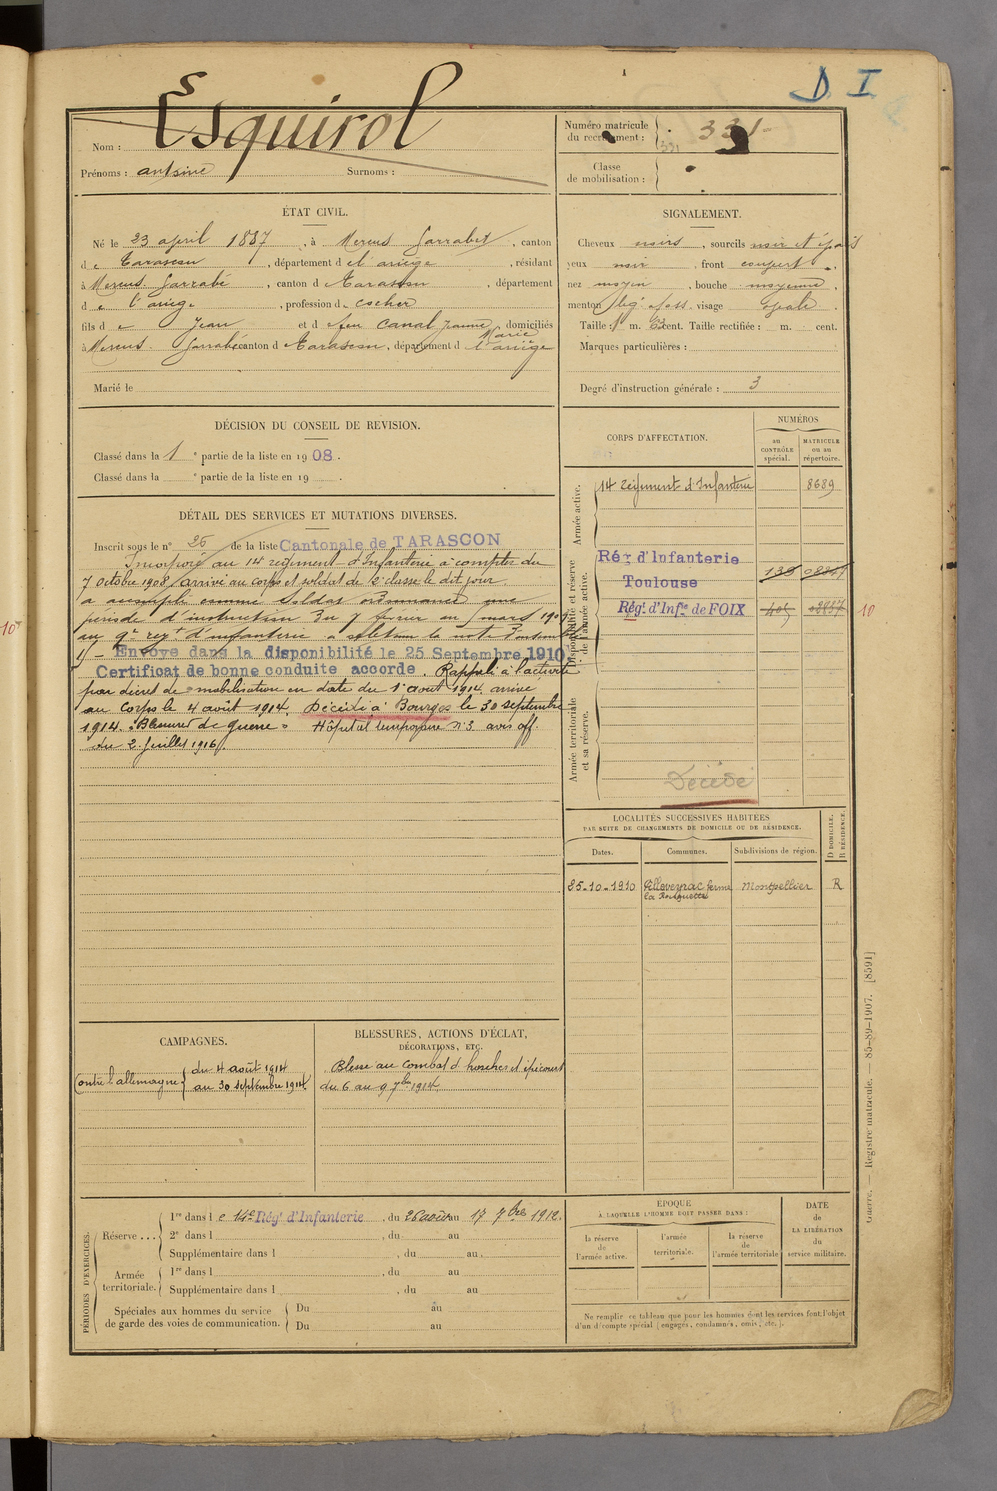 D. I.
Esquirol
Nom :
Prénoms : antoine Surnoms :
Numéro matricule du recrutement : 331
Classe de mobilisation :
ÉTAT CIVIL.
Né le 23 april 1887, à Mercus Garrabet, canton
de Tarascon, département de l'ariege, résidant
à Mercus. Garrabé, canton d Tarascon, département
d e l'ariege, profession de cocher
fils d e Jean et d feu Canal Jeanne Marie, domiciliés
à Mercus. Garrabé canton d Tarascon, département d l'ariège
Marié le
SIGNALEMENT.
Cheveux noirs, sourcils noir et épais
yeux noir, front couvert
nez moyen, bouche moyenne,
menton visage ovale
Taille : 1 m. 63 cent. Taille rectifiée : m. cent.
Marques particulières :
Degré d'instruction générale : 3
DÉCISION DU CONSEIL DE REVISION.
Classé dans la 1e partie de la liste en 1908.
Classé dans la e partie de la liste en 19 .
DÉTAIL DES SERVICES ET MUTATIONS DIVERSES.
Inscrit sous le n° 26 de la liste Cantonale de TARASCON
Incorporé au 14 régiment d'Infanterie à compter du
7 octobre 1908, arrivé au corps et soldat de 2e classe le dit jour.
a accompli comme soldat ordonnance une
période d'instruction du 7 février au mars 190
au 9e reg.t d'infanterie
Envoyé dans la disponibilité le 25 Septembre 1910
Certificat de bonne conduite accordé. Rappelé à l'activité
par décret de mobilisation en date du 1 aout 1914. arrivé
au Corps le 4 aout 1914. Décédé à Bourges le 30 septembre
1914. "Blessures de guerre" Hôpital temporaire n° 3. avis off.
du 2. Juillet 1916.
CORPS D'AFFECTATION.
NUMÉROS
au CONTRÔLE spécial.
MATRICULE ou au répertoire.
Armée active.
14 régiment d'Infanterie 8689
Disponibilité et réserve de l'armée active.
Rég d'Infanterie
Toulouse 139
Rég.t d'Inf.ie de FOIX
10
Armée territoriale et sa réserve.
Décédé
LOCALITÉS SUCCESSIVES HABITÉES
PAR SUITE DE CHANGEMENTS DE DOMICILE OU DE RÉSIDENCE.
Dates. Communes. Subdivisions de région. D DOMICILE. R RÉSIDENCE.
25-10-1910 Villeveyrac ferme Montpellier R
CAMPAGNES.
Contre l'allemagne du 4 août 1914
au 30 septembre 1914
BLESSURES, ACTIONS D'ÉCLAT,
DÉCORATIONS, ETC.
Blessé au combat d
du 6 au 9 7bre 1914
PÉRIODES D'EXERCICES.
Réserve ... 1re dans l e 14e Rég.t d'Infanterie, du 26 août au 17 7bre 1912.
2e dans l , du au
Supplémentaire dans l , du au
Armée territoriale. 1re dans l , du au
Supplémentaire dans l , du au
Spéciales aux hommes du service Du au
de garde des voies de communication. Du au
ÉPOQUE
À LAQUELLE L'HOMME DOIT PASSER DANS :
la réserve de l'armée active.
l'armée territoriale.
la réserve de l'armée territoriale
DATE de LA LIBÉRATION du service militaire.
Ne remplir ce tableau que pour les hommes dont les services font l'objet
d'un décompte spécial (engagés, condamnés, omis, etc.).
Guerre. — Registre matricule. — 85-89-1907. [8591]